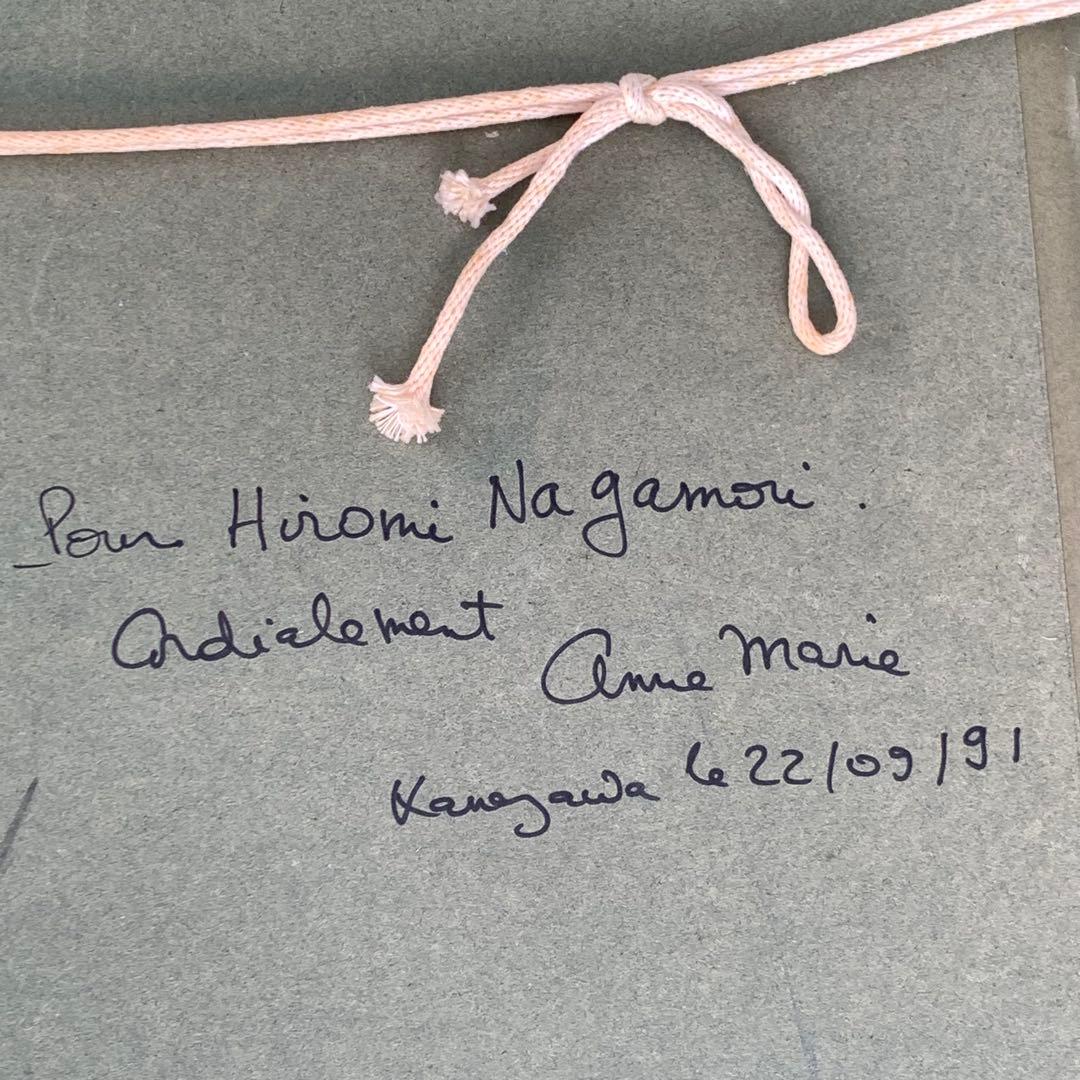 Pour Hiromi Nagamori.
Cordialement
Anne Marie
Kanazawa le 22/09/91